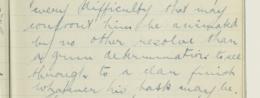 every difficulty that may
confront him, be animated
by no other resolve than
a grim determination to see
through to a clean finish
whatever his task may be.